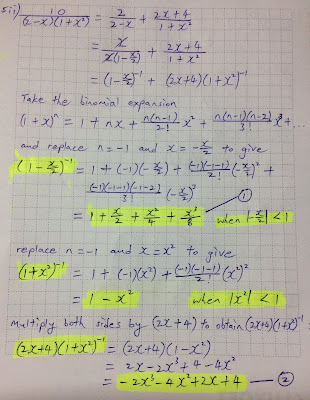 5ii) 10/((2-x)(1+x²)) = 2/(2-x) + (2x+4)/(1+x²)
= 2/(2(1-x/2)) + (2x+4)/(1+x²)
= (1-x/2)⁻¹ + (2x+4)(1+x²)⁻¹
Take the binomial expansion
(1+x)ⁿ = 1 + nx + n(n-1)/2! x² + n(n-1)(n-2)/3! x³ + ...
and replace n=-1 and x = -x/2 to give
(1-x/2)⁻¹ = 1 + (-1)(-x/2) + (-1)(-1-1)/2! (-x/2)² +
(-1)(-1-1)(-1-2)/3! (-x/2)³
①
= 1 + x/2 + x²/4 + x³/8 when |-x/2| < 1
replace n=-1 and x = x² to give
(1+x²)⁻¹ = 1 + (-1)(x²) + (-1)(-1-1)/2! (x²)²
= 1 - x² when |x²| < 1
multiply both sides by (2x+4) to obtain (2x+4)(1+x²)⁻¹
(2x+4)(1+x²)⁻¹ = (2x+4)(1-x²)
= 2x - 2x³ + 4 - 4x²
= -2x³ - 4x² + 2x + 4 ②